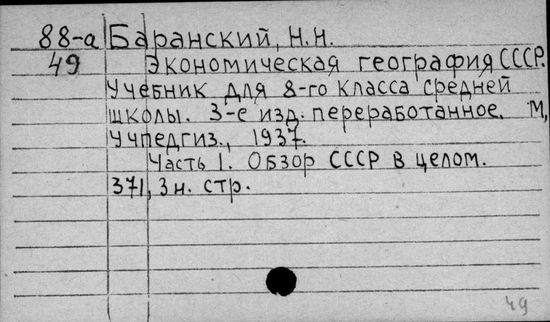 88-а Баранский, Н.Н.
49 Экономическая география СССР.
Учебник для 8-го класса средней
школы. 3-е изд. переработанное. М,
Учпедгиз., 1937.
Часть 1. Обзор СССР в целом.
371, 3 н. стр.
49